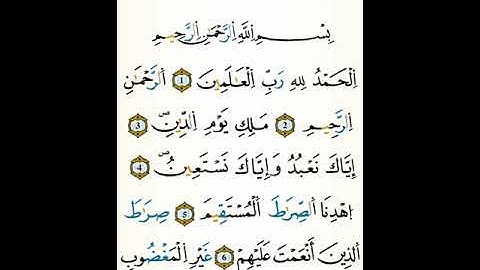 بِسْمِ اللَّهِ اِ۬لرَّحْمَٰنِ اِ۬لرَّحِيمِ
اِ۬لْحَمْدُ لِلهِ رَبِّ اِ۬لْعَٰلَمِينَ 1 اَ۬لرَّحْمَٰنِ
اِ۬لرَّحِيمِ 2 مَلِكِ يَوْمِ اِ۬لدِّينِ 3
إِيَّاكَ نَعْبُدُ وَإِيَّاكَ نَسْتَعِينُ 4
اِ۪هْدِنَا اَ۬لصِّرَٰطَ اَ۬لْمُسْتَقِيمَ 5 صِرَٰطَ
اَ۬لذِينَ أَنْعَمْتَ عَلَيْهِمْ 6 غَيْرِ اِ۬لْمَغْضُوبِ